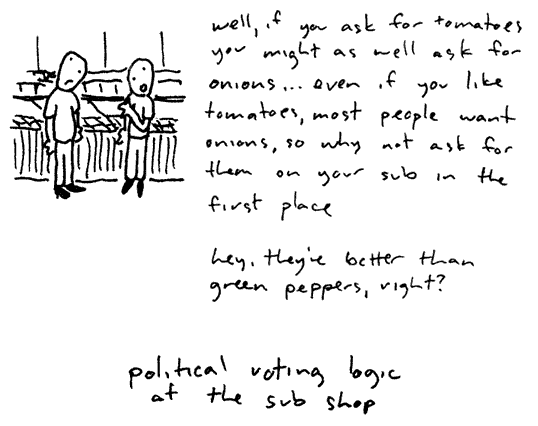 well, if you ask for tomatoes
you might as well ask for
onions... even if you like
tomatoes, most people want
onions, so why not ask for
them on your sub in the
first place
hey, they're better than
green peppers, right?
political voting logic
at the sub shop